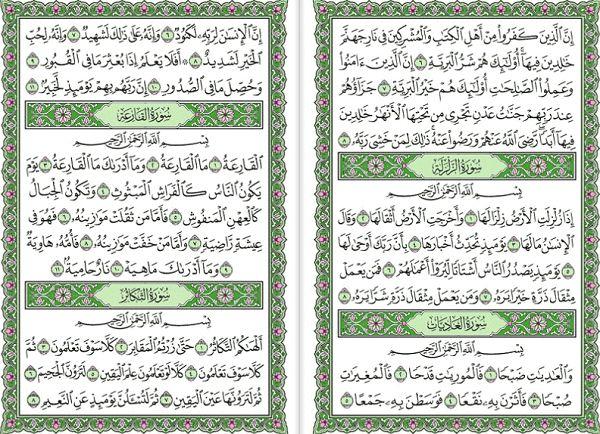 إِنَّ ٱلَّذِينَ كَفَرُوا۟ مِنْ أَهْلِ ٱلْكِتَٰبِ وَٱلْمُشْرِكِينَ فِى نَارِ جَهَنَّمَ
خَٰلِدِينَ فِيهَآ أُو۟لَٰٓئِكَ هُمْ شَرُّ ٱلْبَرِيَّةِ ٦ إِنَّ ٱلَّذِينَ ءَامَنُوا۟
وَعَمِلُوا۟ ٱلصَّٰلِحَٰتِ أُو۟لَٰٓئِكَ هُمْ خَيْرُ ٱلْبَرِيَّةِ ٧ جَزَآؤُهُمْ
عِندَ رَبِّهِمْ جَنَّٰتُ عَدْنٍ تَجْرِى مِن تَحْتِهَا ٱلْأَنْهَٰرُ خَٰلِدِينَ
فِيهَآ أَبَدًا رَّضِىَ ٱللَّهُ عَنْهُمْ وَرَضُوا۟ عَنْهُ ذَٰلِكَ لِمَنْ خَشِىَ رَبَّهُۥ ٨
سُورَةُ الزَّلْزَلَةِ
بِسْمِ ٱللَّهِ ٱلرَّحْمَٰنِ ٱلرَّحِيمِ
إِذَا زُلْزِلَتِ ٱلْأَرْضُ زِلْزَالَهَا ١ وَأَخْرَجَتِ ٱلْأَرْضُ أَثْقَالَهَا ٢ وَقَالَ
ٱلْإِنسَٰنُ مَا لَهَا ٣ يَوْمَئِذٍ تُحَدِّثُ أَخْبَارَهَا ٤ بِأَنَّ رَبَّكَ أَوْحَىٰ لَهَا
٥ يَوْمَئِذٍ يَصْدُرُ ٱلنَّاسُ أَشْتَاتًا لِّيُرَوْا۟ أَعْمَٰلَهُمْ ٦ فَمَن يَعْمَلْ
مِثْقَالَ ذَرَّةٍ خَيْرًا يَرَهُۥ ٧ وَمَن يَعْمَلْ مِثْقَالَ ذَرَّةٍ شَرًّا يَرَهُۥ ٨
سُورَةُ العَادِيَاتِ
بِسْمِ ٱللَّهِ ٱلرَّحْمَٰنِ ٱلرَّحِيمِ
وَٱلْعَٰدِيَٰتِ ضَبْحًا ١ فَٱلْمُورِيَٰتِ قَدْحًا ٢ فَٱلْمُغِيرَٰتِ
صُبْحًا ٣ فَأَثَرْنَ بِهِۦ نَقْعًا ٤ فَوَسَطْنَ بِهِۦ جَمْعًا ٥
إِنَّ ٱلْإِنسَٰنَ لِرَبِّهِۦ لَكَنُودٌ ٦ وَإِنَّهُۥ عَلَىٰ ذَٰلِكَ لَشَهِيدٌ ٧ وَإِنَّهُۥ لِحُبِّ
ٱلْخَيْرِ لَشَدِيدٌ ٨ أَفَلَا يَعْلَمُ إِذَا بُعْثِرَ مَا فِى ٱلْقُبُورِ ٩
وَحُصِّلَ مَا فِى ٱلصُّدُورِ ١٠ إِنَّ رَبَّهُم بِهِمْ يَوْمَئِذٍ لَّخَبِيرٌۢ ١١
سُورَةُ القَارِعَةِ
بِسْمِ ٱللَّهِ ٱلرَّحْمَٰنِ ٱلرَّحِيمِ
ٱلْقَارِعَةُ ١ مَا ٱلْقَارِعَةُ ٢ وَمَآ أَدْرَىٰكَ مَا ٱلْقَارِعَةُ ٣ يَوْمَ
يَكُونُ ٱلنَّاسُ كَٱلْفَرَاشِ ٱلْمَبْثُوثِ ٤ وَتَكُونُ ٱلْجِبَالُ
كَٱلْعِهْنِ ٱلْمَنفُوشِ ٥ فَأَمَّا مَن ثَقُلَتْ مَوَٰزِينُهُۥ ٦ فَهُوَ فِى
عِيشَةٍ رَّاضِيَةٍ ٧ وَأَمَّا مَنْ خَفَّتْ مَوَٰزِينُهُۥ ٨ فَأُمُّهُۥ هَاوِيَةٌ
٩ وَمَآ أَدْرَىٰكَ مَا هِيَهْ ١٠ نَارٌ حَامِيَةٌۢ ١١
سُورَةُ التَّكَاثُرِ
بِسْمِ ٱللَّهِ ٱلرَّحْمَٰنِ ٱلرَّحِيمِ
أَلْهَىٰكُمُ ٱلتَّكَاثُرُ ١ حَتَّىٰ زُرْتُمُ ٱلْمَقَابِرَ ٢ كَلَّا سَوْفَ تَعْلَمُونَ ٣ ثُمَّ
كَلَّا سَوْفَ تَعْلَمُونَ ٤ كَلَّا لَوْ تَعْلَمُونَ عِلْمَ ٱلْيَقِينِ ٥ لَتَرَوُنَّ ٱلْجَحِيمَ ٦
ثُمَّ لَتَرَوُنَّهَا عَيْنَ ٱلْيَقِينِ ٧ ثُمَّ لَتُسْـَٔلُنَّ يَوْمَئِذٍ عَنِ ٱلنَّعِيمِ ٨